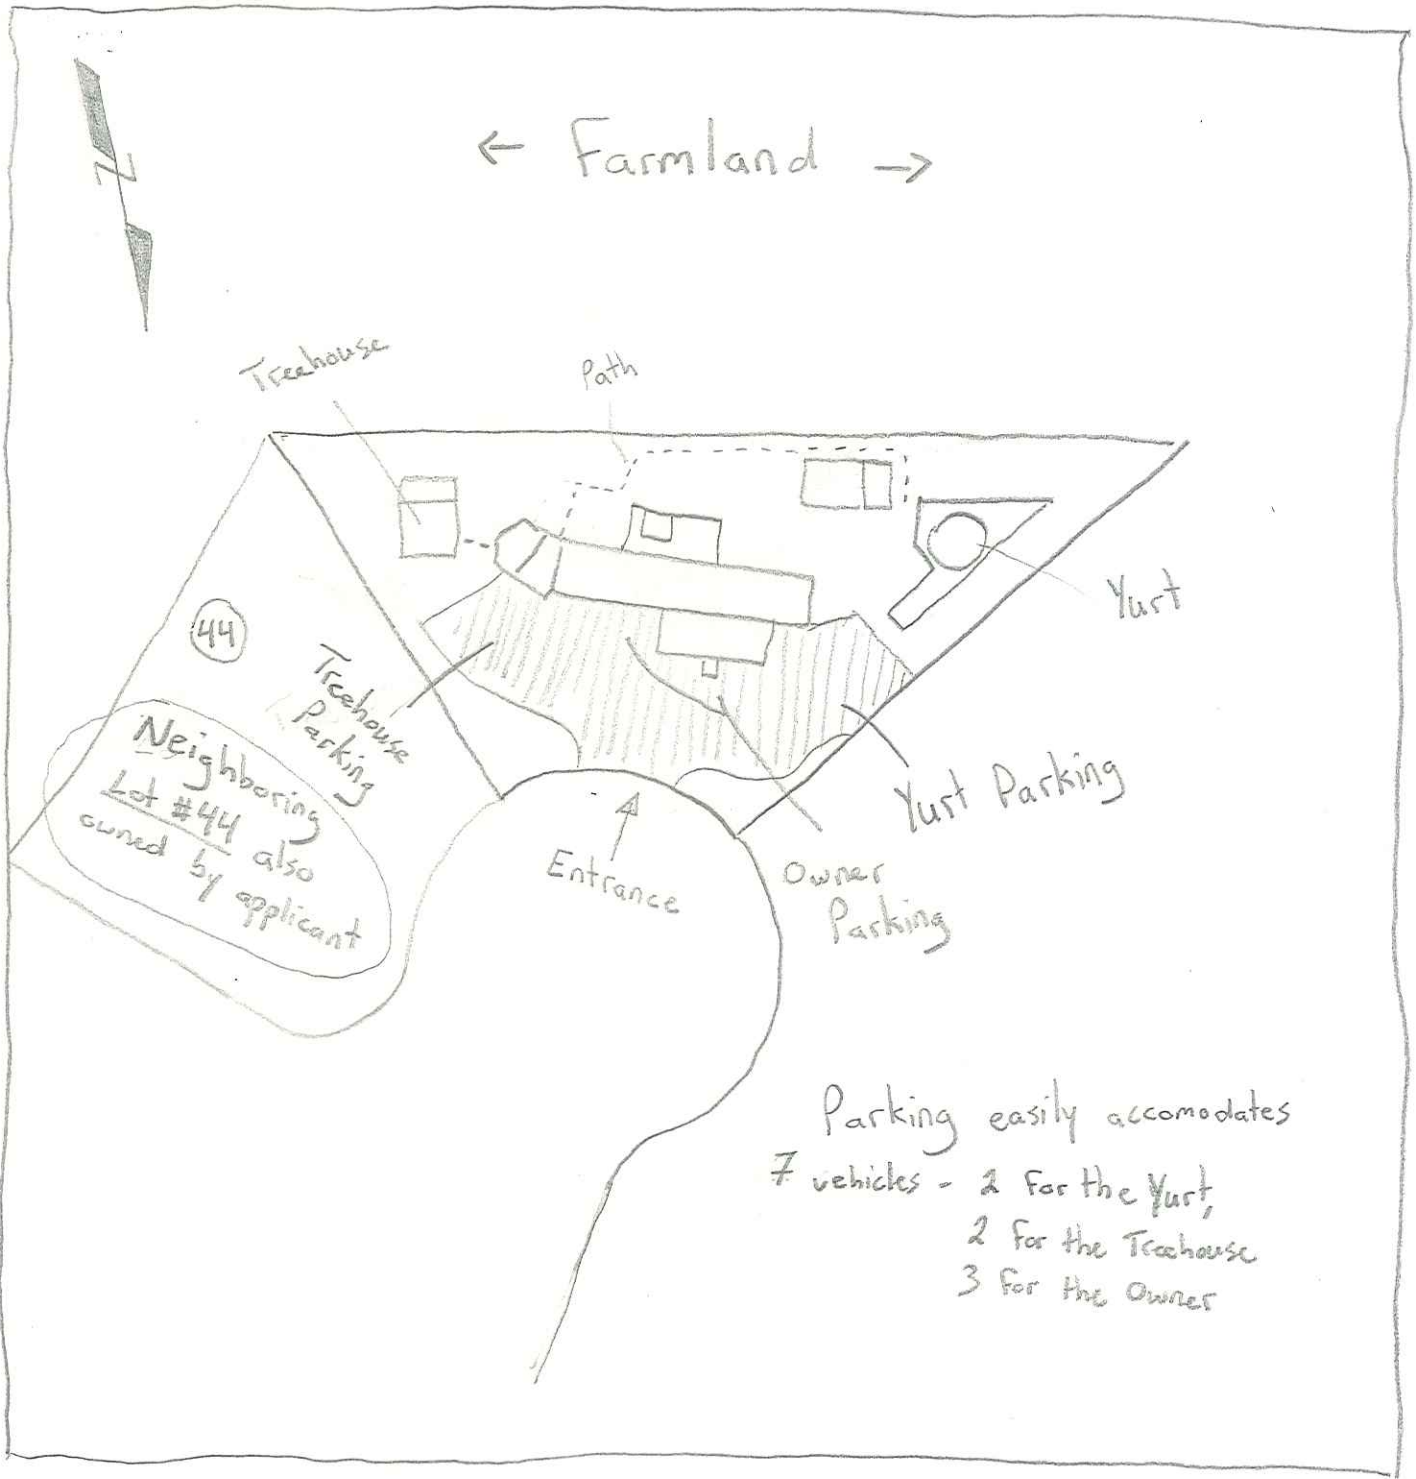 N
← Farmland →
Treehouse
Path
44
Yurt
Treehouse
Parking
Neighboring
Lot #44 also
owned by applicant
Yurt Parking
Entrance
Owner
Parking
Parking easily accomodates
7 vehicles - 2 for the Yurt,
2 for the Treehouse
3 for the Owner